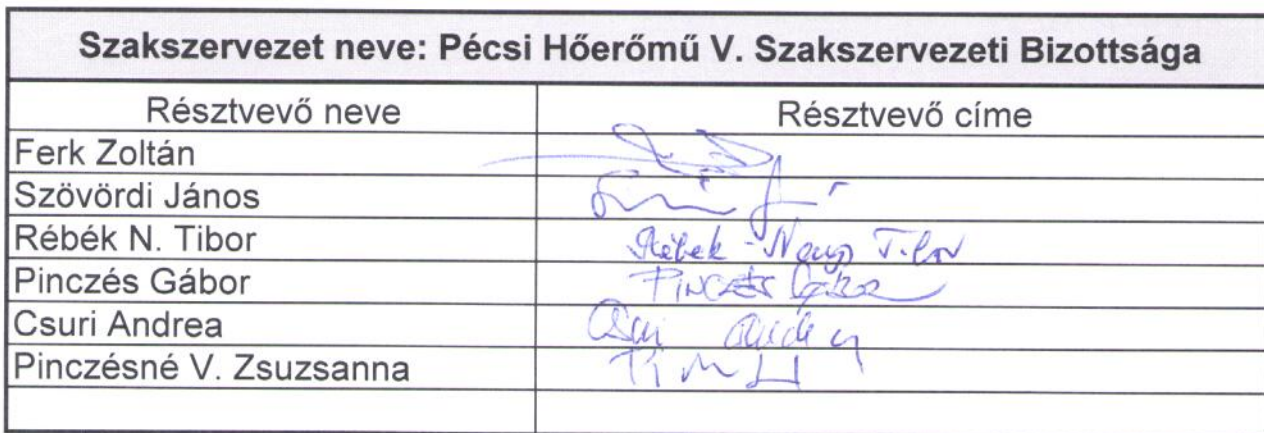 Szakszervezet neve: Pécsi Hőerőmű V. Szakszervezeti Bizottsága
Résztvevő neve Résztvevő címe
Ferk Zoltán
Szövördi János
Rébék N. Tibor Rébék-Nagy Tibor
Pinczés Gábor Pinczés Gábor
Csuri Andrea Csuri Andrea
Pinczésné V. Zsuzsanna